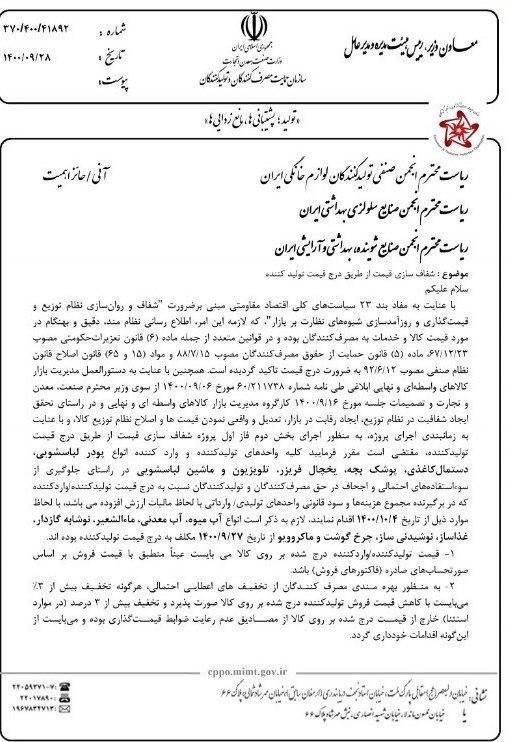 معاون وزیر، رییس هیئت مدیره و مدیر عامل
جمهوری اسلامی ایران
وزارت صنعت، معدن و تجارت
سازمان حمایت مصرف کنندگان و تولیدکنندگان
شماره : ۳۷۰/۴۰۰/۴۱۸۹۲
تاریخ : ۱۴۰۰/۰۹/۲۸
پیوست:
«تولید؛ پشتیبانی‌ها، مانع زدایی‌ها»
ریاست محترم انجمن صنفی تولیدکنندگان لوازم خانگی ایران
آنی/حائز اهمیت
ریاست محترم انجمن صنایع سلولزی بهداشتی ایران
ریاست محترم انجمن صنایع شوینده، بهداشتی و آرایشی ایران
موضوع : شفاف سازی قیمت از طریق درج قیمت تولید کننده
سلام علیکم
با عنایت به مفاد بند ۲۳ سیاست‌های کلی اقتصاد مقاومتی مبنی برضرورت "شفاف و روان‌سازی نظام توزیع و
قیمت‌گذاری و روزآمدسازی شیوه‌های نظارت بر بازار"، که لازمه این امر، اطلاع رسانی نظام مند، دقیق و بهنگام در
مورد قیمت کالا و خدمات به مصرف‌کنندگان بوده و در قوانین متعدد از جمله ماده (۶) قانون تعزیرات‌حکومتی مصوب
۶۷/۱۲/۲۳، ماده (۵) قانون حمایت از حقوق مصرف‌کنندگان مصوب ۸۸/۷/۱۵ و مواد (۱۵ و ۶۵) قانون اصلاح قانون
نظام صنفی مصوب ۹۲/۶/۱۲ به ضرورت درج قیمت تاکید گردیده است. همچنین با عنایت به دستورالعمل مدیریت بازار
کالاهای واسطه‌ای و نهایی ابلاغی طی نامه شماره ۶۰/۲۱۱۷۳۸ مورخ ۱۴۰۰/۰۹/۰۶ از سوی وزیر محترم صنعت، معدن
و تجارت و تصمیمات جلسه مورخ ۱۴۰۰/۹/۱۶ کارگروه مدیریت بازار کالاهای واسطه ای و نهایی و در راستای تحقق
ایجاد شفافیت در نظام توزیع، ایجاد رقابت در بازار، تعدیل و واقعی نمودن قیمت ها و اصلاح نظام توزیع کالا، و با عنایت
به زمانبندی اجرای پروژه، به منظور اجرای بخش دوم فاز اول پروژه شفاف سازی قیمت از طریق درج قیمت
تولیدکننده، مقتضی است مقرر فرمایید کلیه واحدهای تولیدکننده و وارد کننده انواع پودر لباسشویی،
دستمال‌کاغذی، پوشک بچه، یخچال فریزر، تلویزیون و ماشین لباسشویی در راستای جلوگیری از
سوءاستفاده‌های احتمالی و اجحاف در حق مصرف‌کنندگان و تولیدکنندگان نسبت به درج قیمت تولیدکننده/واردکننده
که در برگیرنده مجموع هزینه‌ها و سود قانونی واحدهای تولیدی/ وارداتی با لحاظ مالیات ارزش افزوده می باشد، با لحاظ
موارد ذیل از تاریخ ۱۴۰۰/۱۰/۴ اقدام نمایند، لازم به ذکر است انواع آب میوه، آب معدنی، ماءالشعیر، نوشابه گازدار،
غذاساز، نوشیدنی ساز، چرخ گوشت و ماکروویو از تاریخ ۱۴۰۰/۹/۲۷ مکلف به درج قیمت تولیدکننده بوده اند.
۱- قیمت تولیدکننده/واردکننده درج شده بر روی کالا می بایست عیناً منطبق با قیمت فروش بر اساس
صورتحساب‌های صادره (فاکتورهای فروش) باشد.
۲- به منظور بهره مندی مصرف کنندگان از تخفیف های اعطایی احتمالی، هرگونه تخفیف بیش از ۳٪
می‌بایست با کاهش قیمت فروش تولیدکننده درج شده بر روی کالا صورت پذیرد و تخفیف بیش از ۳ درصد (در موارد
استثناء) خارج از قیمت درج شده بر روی کالا از مصادیق عدم رعایت ضوابط قیمت‌گذاری بوده و می‌بایست از
این‌گونه اقدامات خودداری گردد.
cppo.mimt.gov.ir